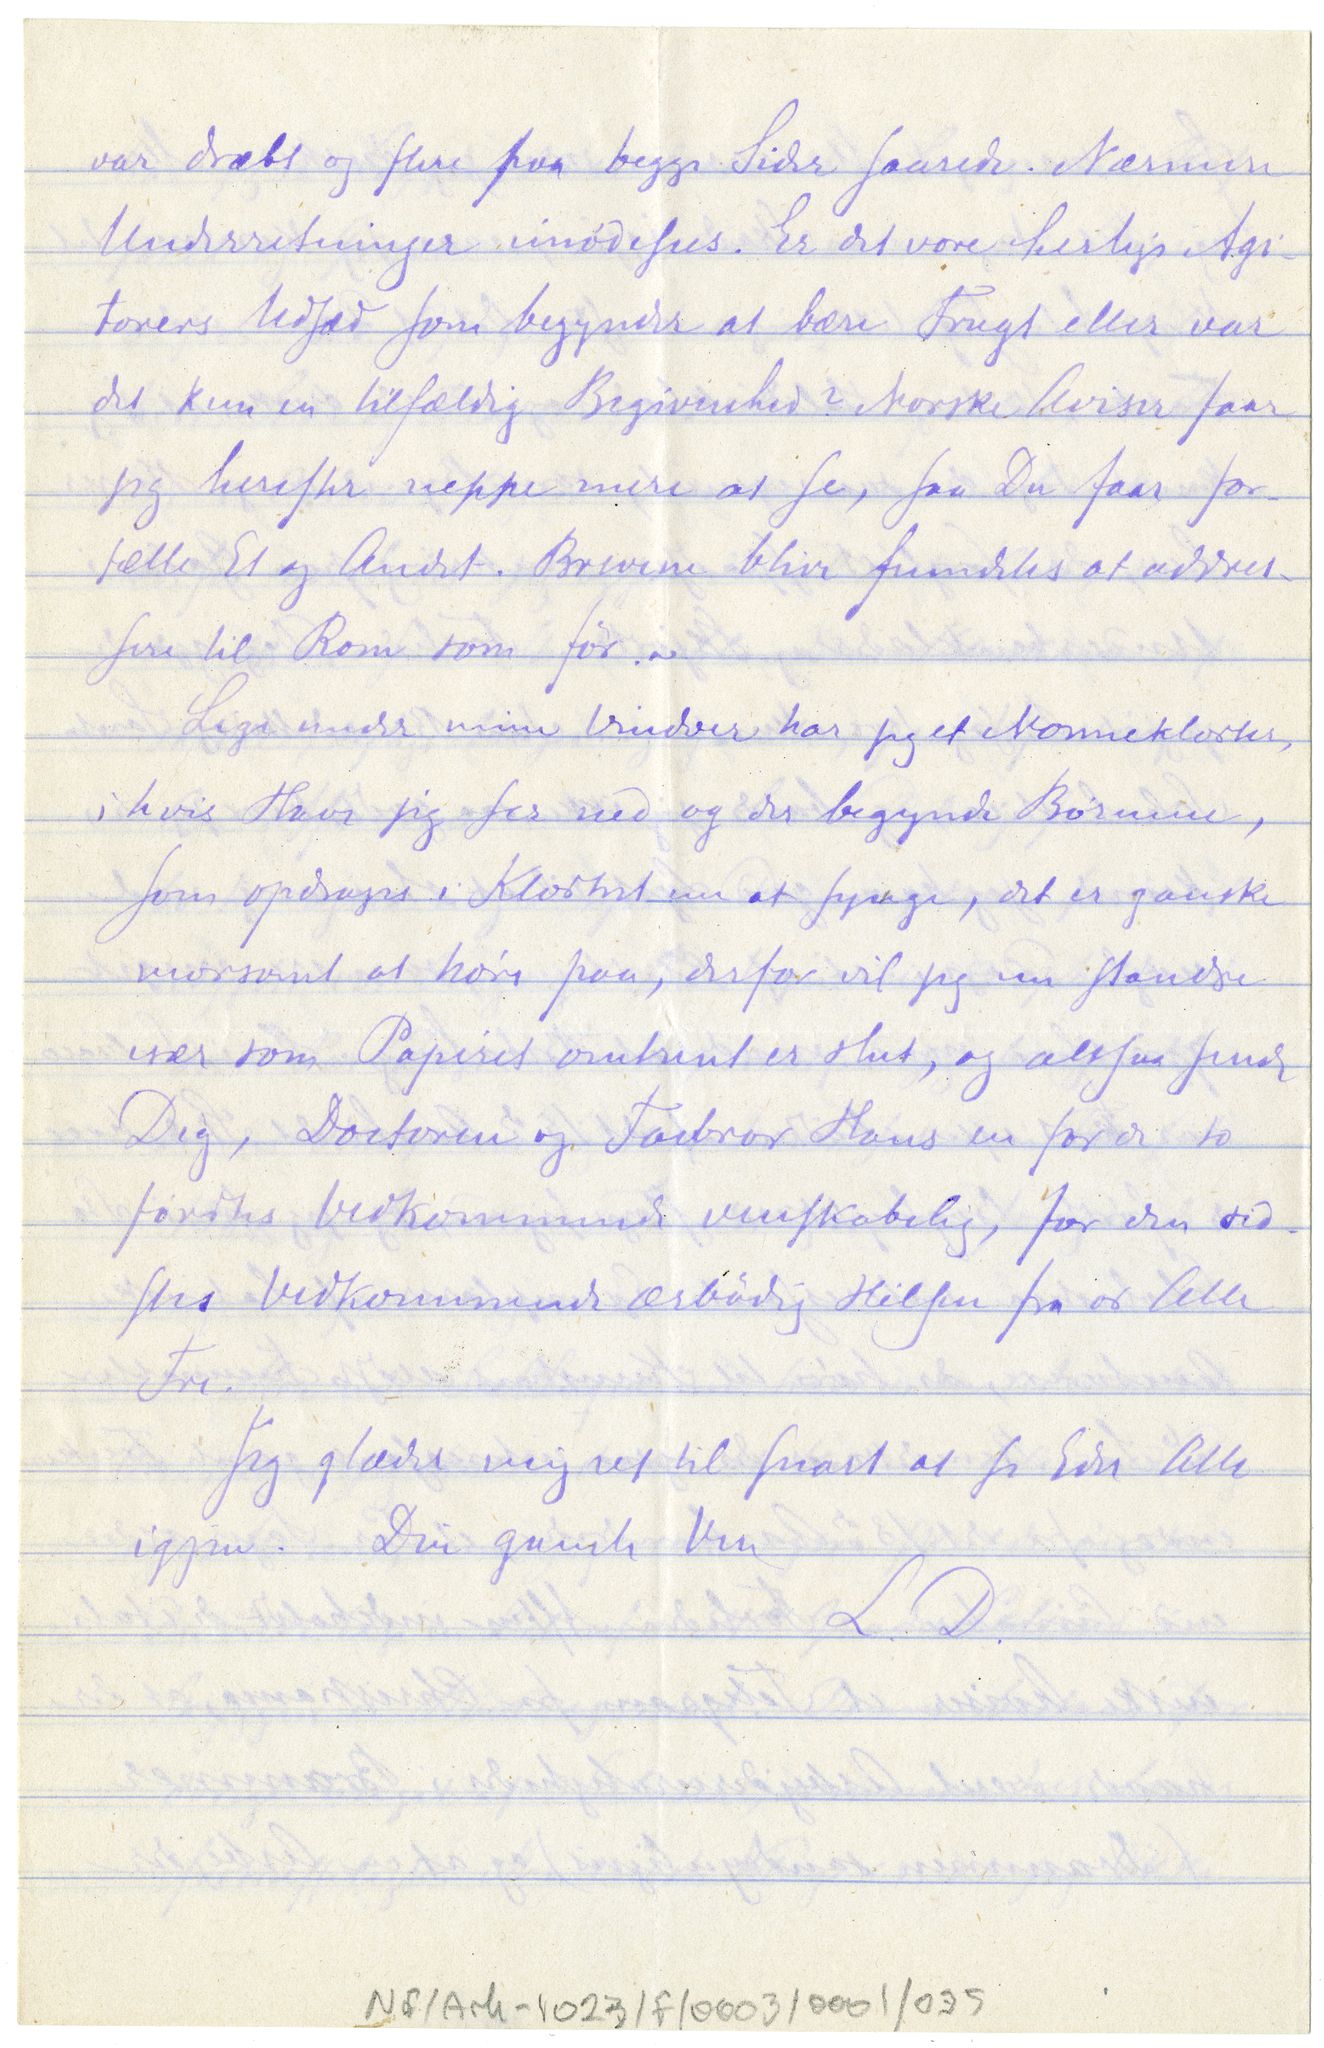 var dræbt og flere paa begge Sider saarede. Nærmere
Underretninger imødesees. Er det vore herlige Agi-
torers Udsæd som begynder at bære Frugt eller var
det kun en tilfældig Begivenhed? Norske Aviser faar
jeg herefter neppe mere at se, saa Du faar for-
tælle Et og Andet. Brevene blive fremdeles at addres-
sere til Rom som før.
Lige under mine Vinduer har jeg et Nonnekloster,
i hvis Have jeg ser ned og der begynde Børnene,
som opdrages i Klostret nu at synge, det er ganske
morsomt at høre paa, derfor vil jeg nu standse
især som Papiret omtrent er slut, og altsaa sende
Dig, Doctoren og Farbror Hans en for de to
førstes Vedkommende venskabelig, for den sid-
stes Vedkommende ærbødig Hilsen fra os Alle
Tre.
Jeg glæder mig ret til snart at se Eder Alle
igjen. Din gamle Ven
L. D.
NF/Ark-1023/F/0003/0001/035